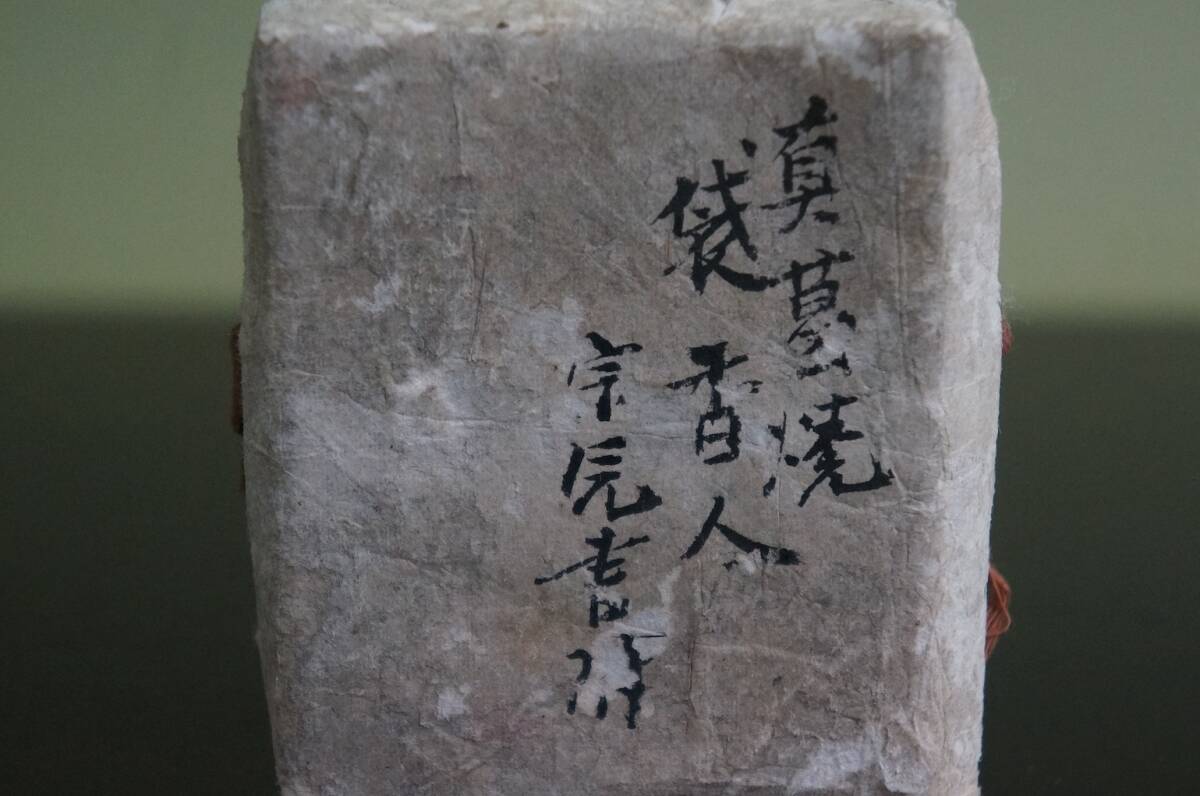 真葛焼
袋 香合
宗 書附